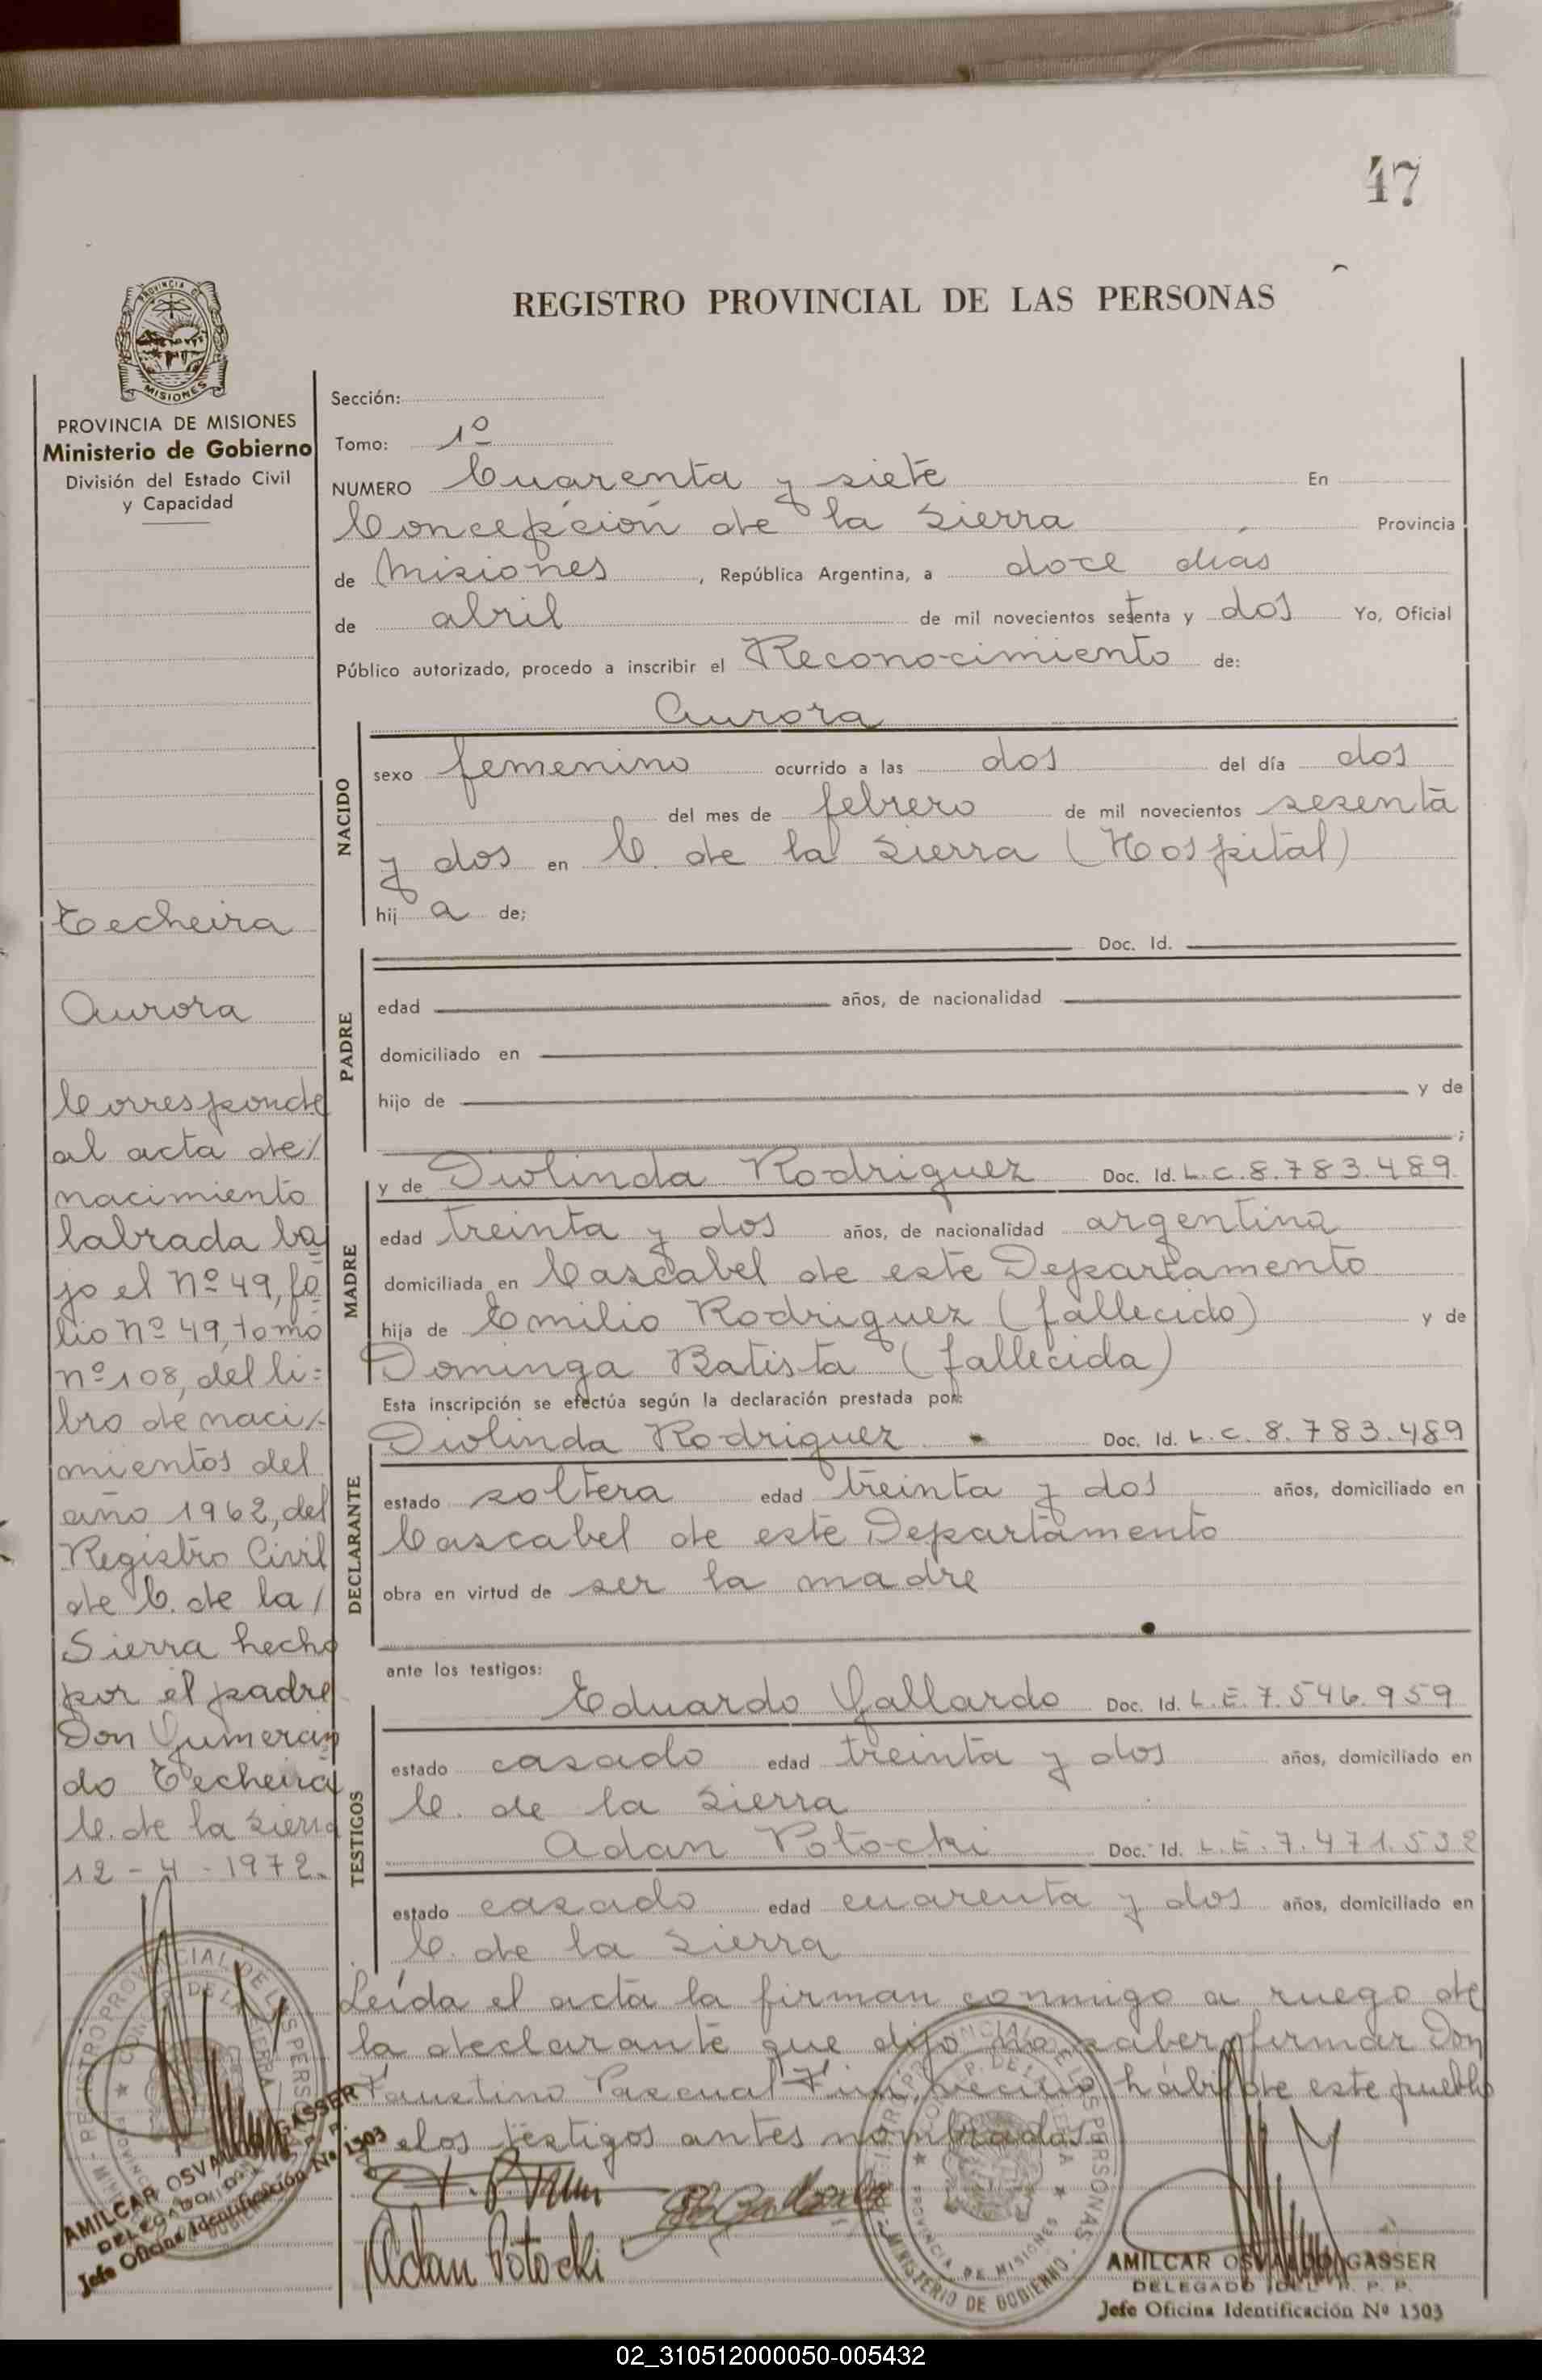 47
REGISTRO PROVINCIAL DE LAS PERSONAS
PROVINCIA DE MISIONES
Ministerio de Gobierno
División del Estado Civil
y Capacidad
Techeira
Aurora
Corresponde
al acta de/
nacimiento
labrada ba
jo el Nº 49, fo
lio nº 49, tomo
nº 108, del li=
bro de naci/-
mientos del
año 1962, del
Registro Civil
de C. de la /
Sierra hecho
por el padre
Don Gumercin
do Techeira
C. de la Sierra
12 - 4 - 1972.
Sección:
Tomo: 1º
NUMERO Cuarenta y siete En
Concepción de la Sierra Provincia
de Misiones, República Argentina, a doce días
de abril de mil novecientos setenta y dos Yo, Oficial
Público autorizado, procedo a inscribir el Reconocimiento de:
NACIDO
Aurora
sexo femenino ocurrido a las dos del día dos
del mes de febrero de mil novecientos sesenta
y dos en C. de la Sierra (Hospital)
hij a de;
PADRE
Doc. Id.
edad años, de nacionalidad
domiciliado en
hijo de y de
;
MADRE
y de Diolinda Rodriguez Doc. Id. L.C. 8.783.489
edad treinta y dos años, de nacionalidad argentina
domiciliada en Cascabel de este Departamento
hija de Emilio Rodriguez (fallecido) y de
Dominga Batista (fallecida)
Esta inscripción se efectúa según la declaración prestada por:
DECLARANTE
Diolinda Rodriguez Doc. Id. L.C. 8.783.489
estado soltera edad treinta y dos años, domiciliado en
Cascabel de este Departamento
obra en virtud de ser la madre
ante los testigos:
TESTIGOS
Eduardo Gallardo Doc. Id. L.E. 7.546.959
estado casado edad treinta y dos años, domiciliado en
C. de la Sierra
Adan Potocki Doc. Id. L.E. 7.471.532
estado casado edad cuarenta y dos años, domiciliado en
C. de la Sierra
Leída el acta la firman conmigo a ruego de
la declarante que dijo no saber firmar Don
Faustino Pascual vecino hábil de este pueblo
e los testigos antes nombrados.
Adan Potocki
REGISTRO PROVINCIAL DE LAS PERSONAS
MINISTERIO DE GOBIERNO
PROVINCIA DE MISIONES
AMILCAR OSVALDO GASSER
DELEGADO DEL R. P. P.
Jefe Oficina Identificación Nº 1503
AMILCAR OSVALDO GASSER
DELEGADO DEL R. P. P.
Jefe Oficina Identificación Nº 1503
02_310512000050-005432